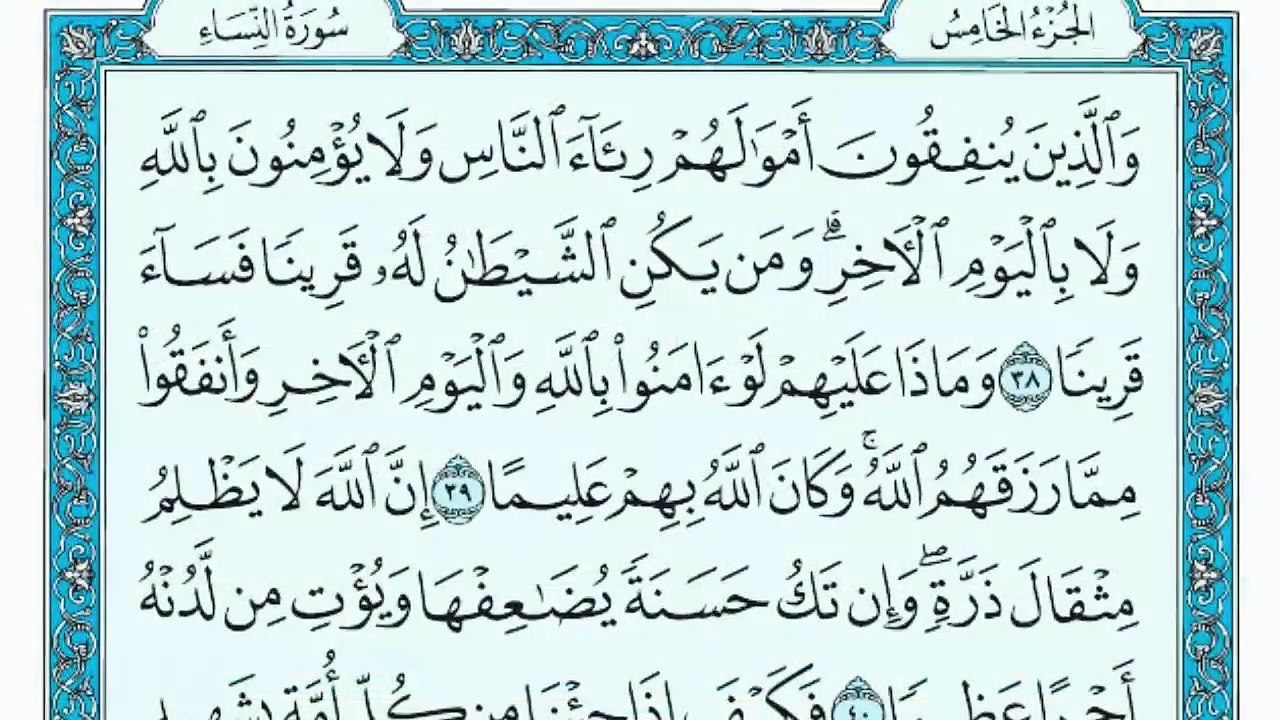 الجُزْءُ الخَامِسُ
سُورَةُ النِّسَاءِ
وَٱلَّذِينَ يُنفِقُونَ أَمْوَٰلَهُمْ رِئَآءَ ٱلنَّاسِ وَلَا يُؤْمِنُونَ بِٱللَّهِ
وَلَا بِٱلْيَوْمِ ٱلْـَٔاخِرِ ۗ وَمَن يَكُنِ ٱلشَّيْطَٰنُ لَهُۥ قَرِينًا فَسَآءَ
قَرِينًا ٣٨ وَمَاذَا عَلَيْهِمْ لَوْ ءَامَنُوا۟ بِٱللَّهِ وَٱلْيَوْمِ ٱلْـَٔاخِرِ وَأَنفَقُوا۟
مِمَّا رَزَقَهُمُ ٱللَّهُ ۚ وَكَانَ ٱللَّهُ بِهِمْ عَلِيمًا ٣٩ إِنَّ ٱللَّهَ لَا يَظْلِمُ
مِثْقَالَ ذَرَّةٍ ۖ وَإِن تَكُ حَسَنَةً يُضَٰعِفْهَا وَيُؤْتِ مِن لَّدُنْهُ
أَجْرًا عَظِيمًا ٤٠ فَكَيْفَ إِذَا جِئْنَا مِن كُلِّ أُمَّةٍۭ بِشَهِيدٍ